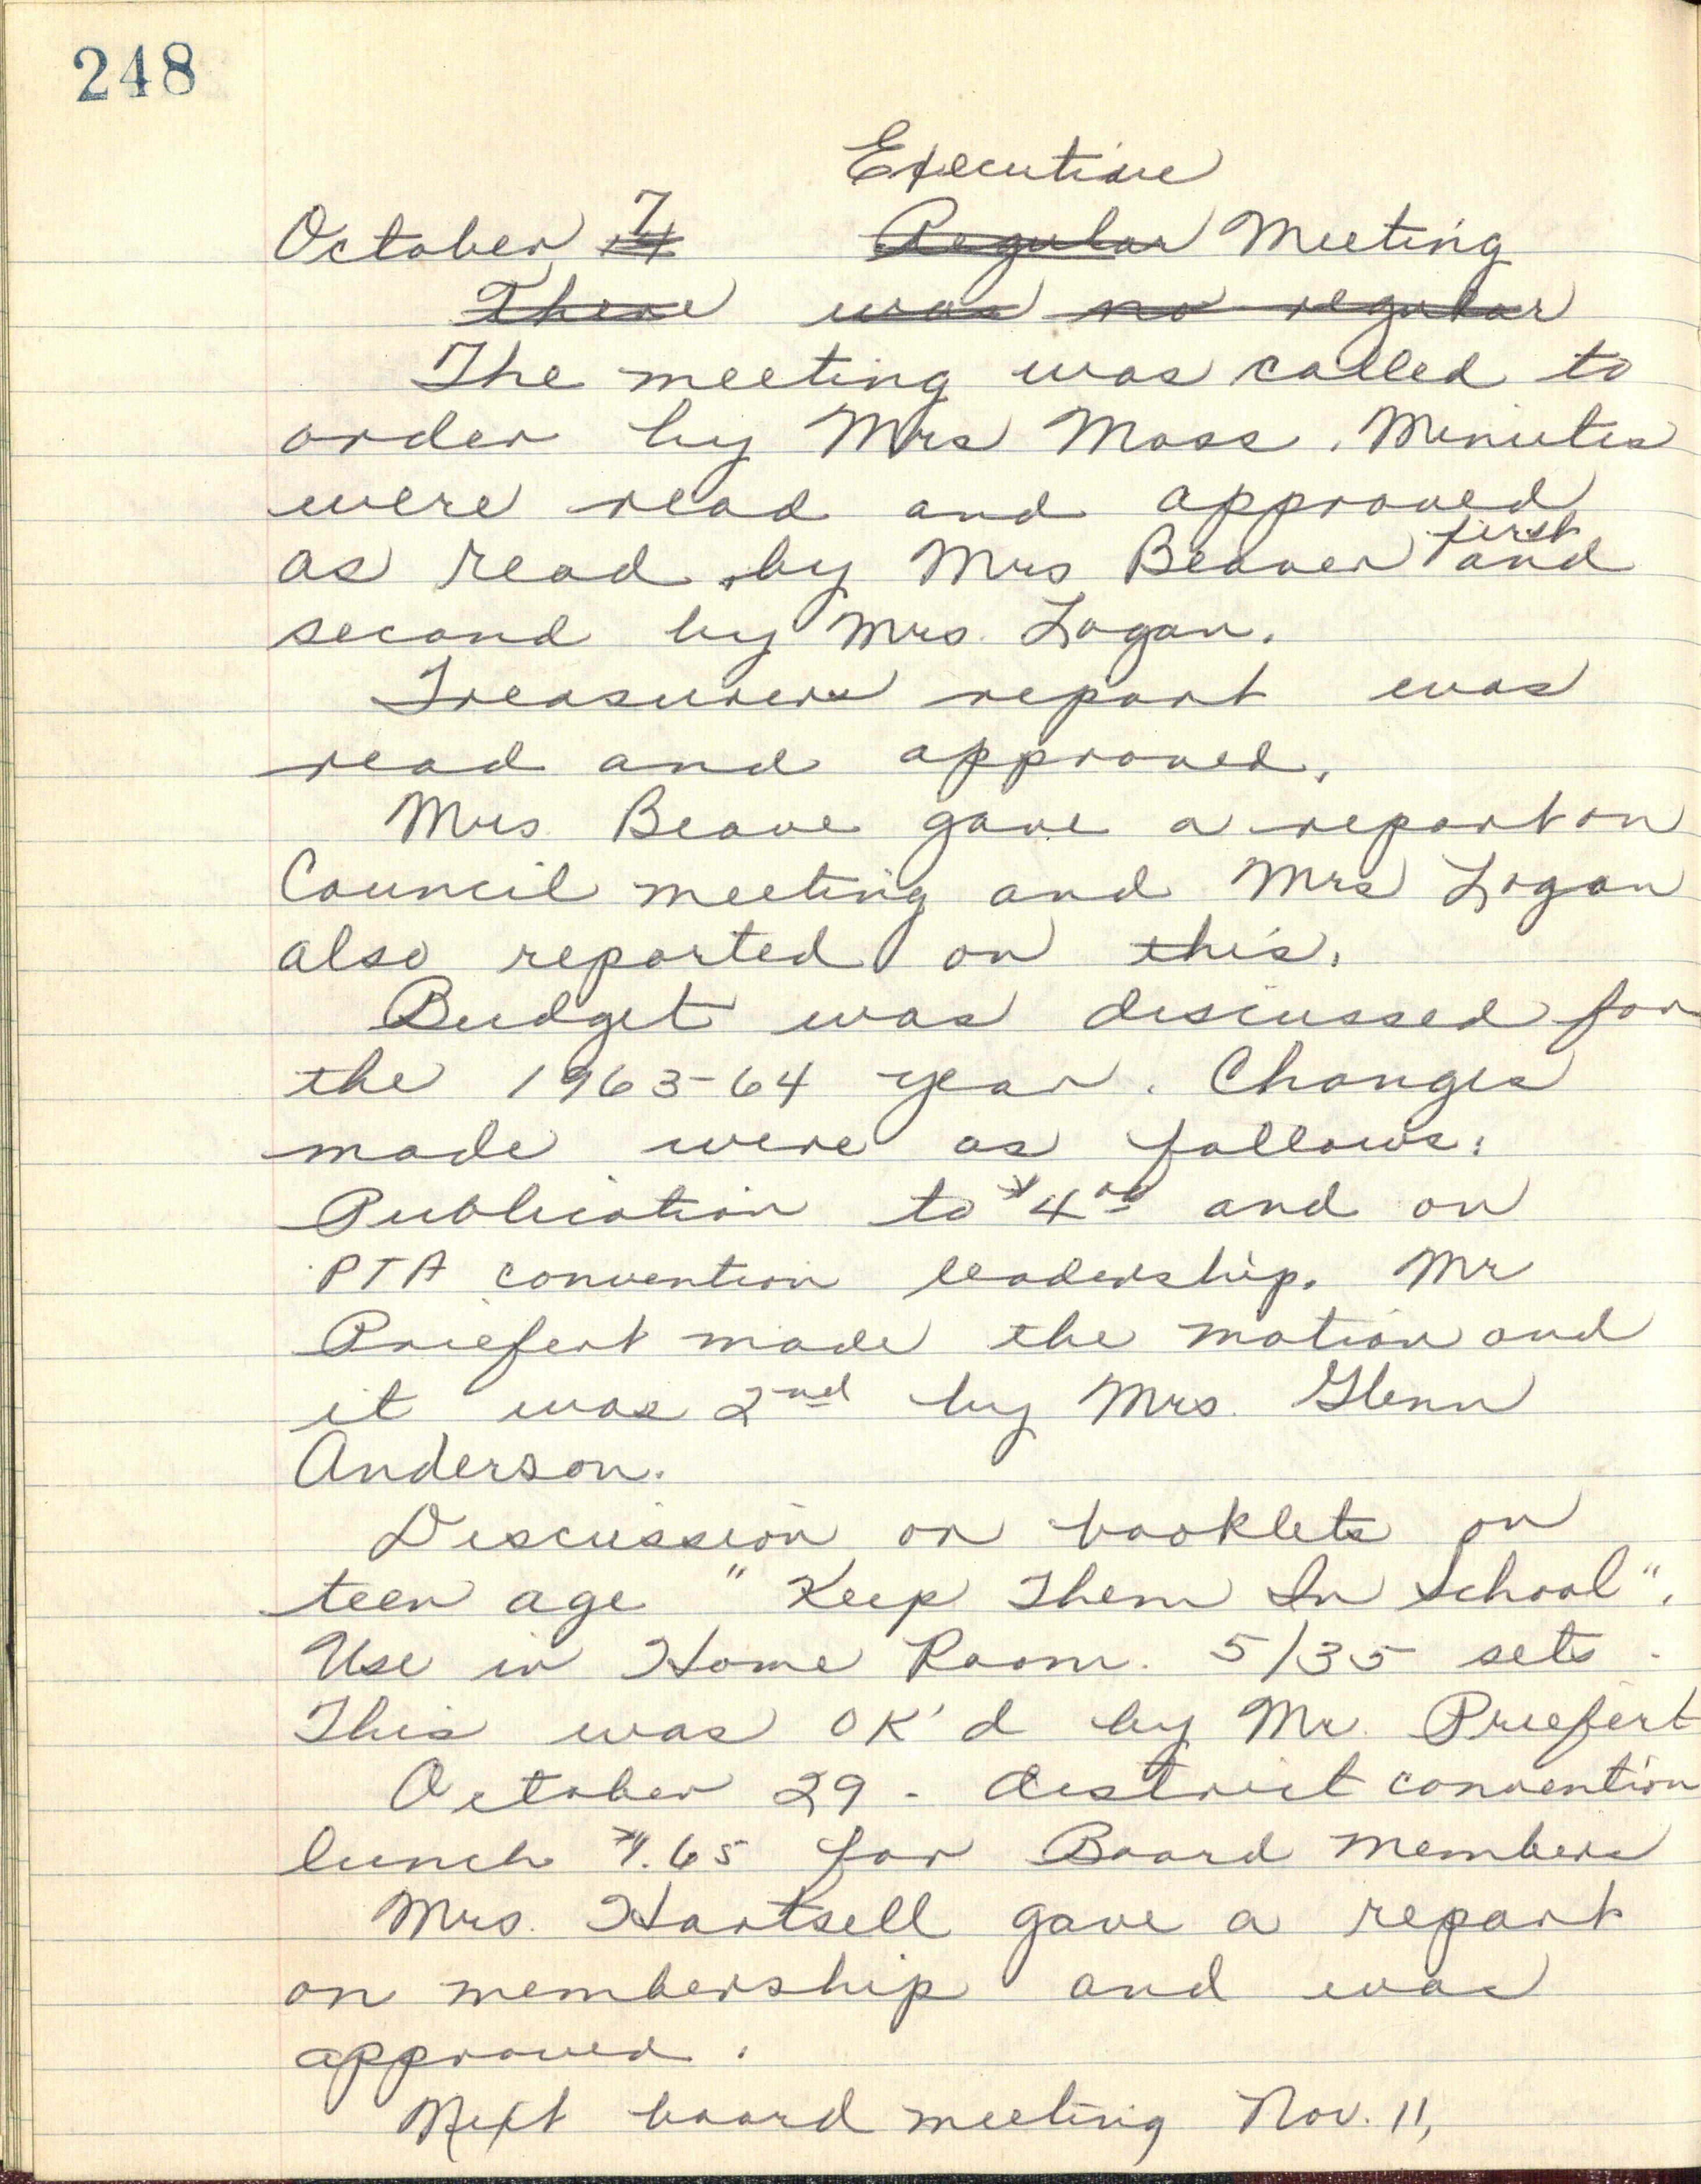 248
Executive
October 14 7 Regular Meeting
There was no regular
The meeting was called to
order by Mrs Moss. Minutes
were read and approved
as read by Mrs Beaver first and
second by Mrs. Logan.
Treasurers report was
read and approved.
Mrs Beave gave a report on
Council meeting and Mrs Logan
also reported on this.
Budget was discussed for
the 1963-64 year. Changes
made were as follows:
Publication to $4.00 and on
PTA convention leadership. Mr
Priefert made the motion and
it was 2nd by Mrs. Glenn
Anderson.
Discussion on booklets on
teen age "Keep Them In School".
Use in Home Room. 5/35 sets.
This was OK'd by Mr. Priefert
October 29 - district convention
lunch $1.65 for Board members
Mrs. Hartsell gave a report
on membership and was
approved.
Next board meeting Nov. 11,